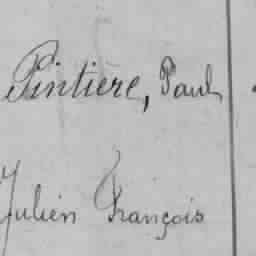 Pintière, Paul
Julien François